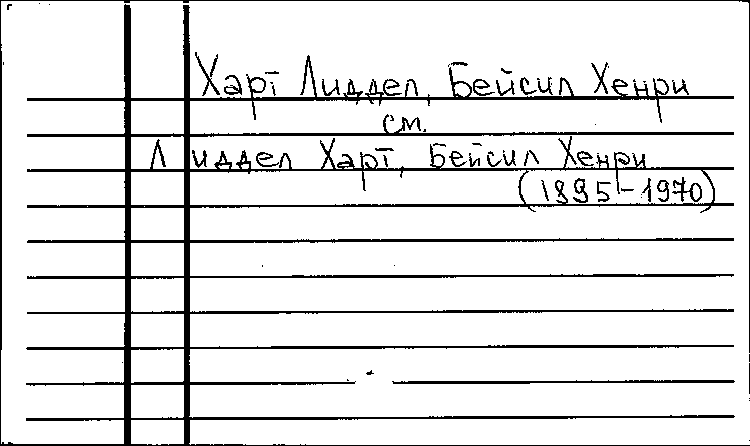 Харт Лиддел, Бейсил Хенри
см.
Лиддел Харт, Бейсил Хенри
(1895-1970)